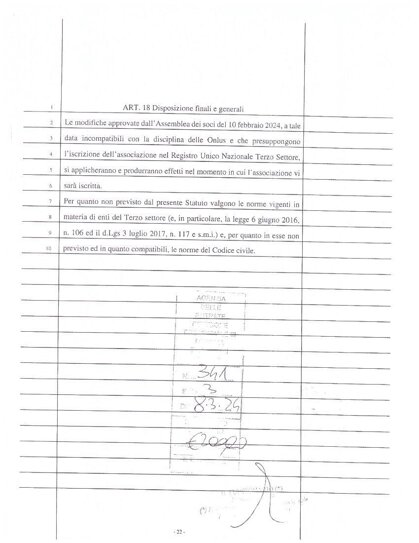 1 ART. 18 Disposizione finali e generali
2 Le modifiche approvate dall'Assemblea dei soci del 10 febbraio 2024, a tale
3 data incompatibili con la disciplina delle Onlus e che presuppongono
4 l'iscrizione dell'associazione nel Registro Unico Nazionale Terzo Settore,
5 si applicheranno e produrranno effetti nel momento in cui l'associazione vi
6 sarà iscritta.
7 Per quanto non previsto dal presente Statuto valgono le norme vigenti in
8 materia di enti del Terzo settore (e, in particolare, la legge 6 giugno 2016,
9 n. 106 ed il d.lgs 3 luglio 2017, n. 117 e s.m.i.) e, per quanto in esse non
10 previsto ed in quanto compatibili, le norme del Codice civile.
AGENZIA
DELLE
ENTRATE
341
3
8.3.24
- 22 -